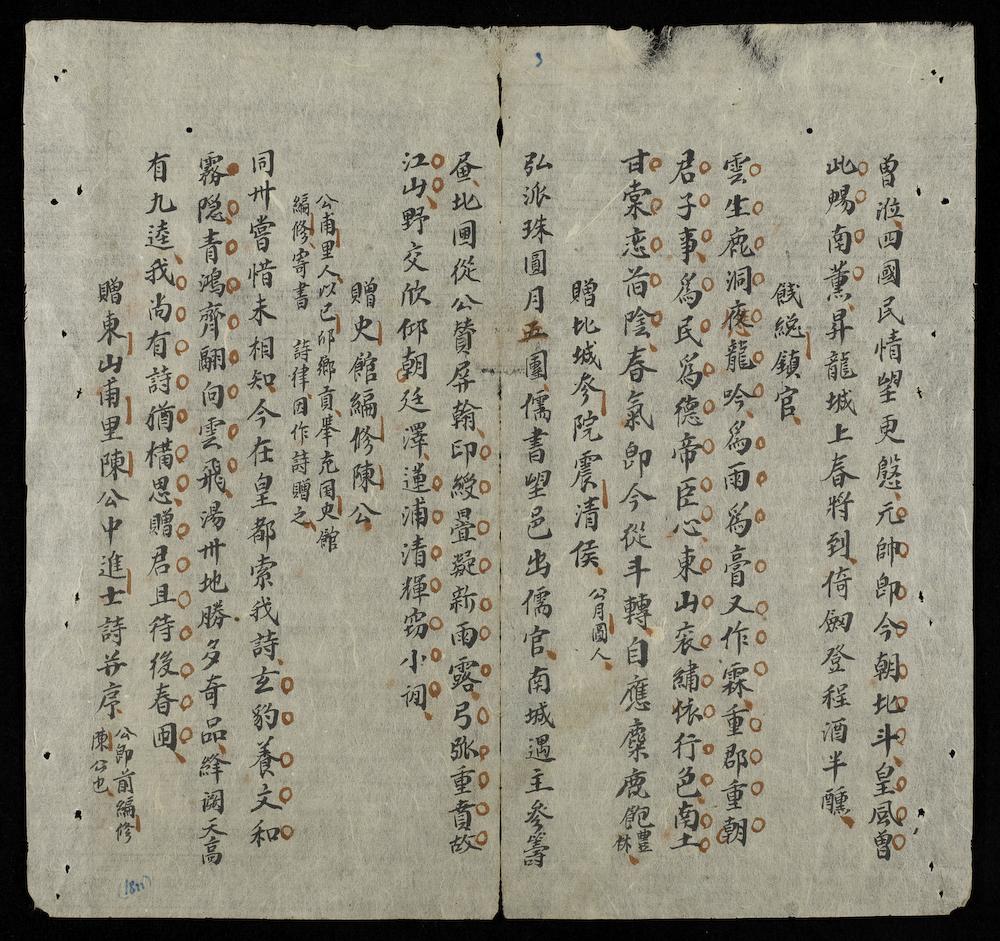 曾涖四國民情望更慇元帥卽今朝北斗皇風曾
此暢南薰昇龍城上春將到倚劔登程酒半醺
餞總鎮官
雲生鹿洞夜龍吟爲雨爲膏又作霖重郡重朝
君子事爲民爲德帝臣心東山衮繡依行色南土
甘棠恋茀陰春氣卽今從斗轉自應麋鹿飽豐
林
贈北城參院震清侯 公月圓人
弘派珠圓月五團儒書望邑出儒官南城遇主參籌
昼北圃從公贊屏翰印綬疊凝新雨露弓張重賁故
江山野交欣仰朝廷澤蓮浦清輝窃小詞
贈史館編修陳公
公甫里人以己卯鄉貢舉充国史館
編修寄書 詩律因作詩贈之
同卅嘗惜未相知今在皇都索我詩玄豹養文和
霧隐青鴻齊翮向雲飛湯卅地勝多奇品絳闕天高
有九逵我尚有詩猶構思贈君且待後春囬
贈東山甫里陳公中進士詩并序 公卽前編修
陳公也
(1821)